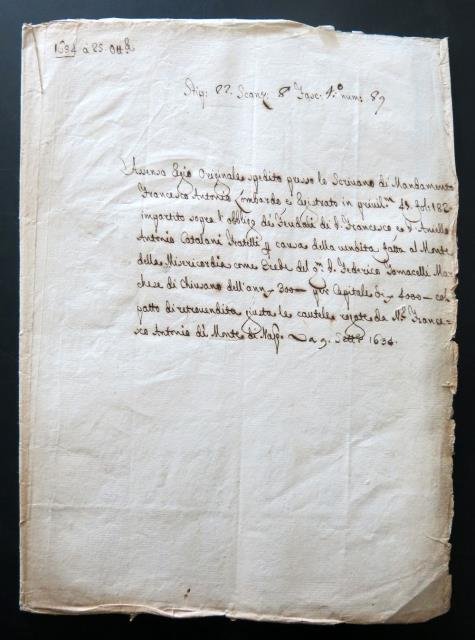 1634 à 25. Ott.e
Stip: 22. Scanz. 8ª Fasc: 4.º num: 89
Assenso Regio Originale spedito presso lo Scrivano di Mandamento
Francesco Antonio Lombardo e Registrato in privil.m 49. fol: 182
impartito sopra l'obbligo di Feudali di D. Francesco e D. Aniello
Antonio Catalani Fratelli p causa della vendita fatta al Monte
della Misericordia come Erede del q.m D. Federico Tomacelli Mar=
chese di Chiusano dell'ann. 300 — per Capitale di 4000 — col
patto di retrovendita giusta le cautele rogate da N.r France=
sco Antonio di Monte di Nap. Da 9. Sett.e 1634.